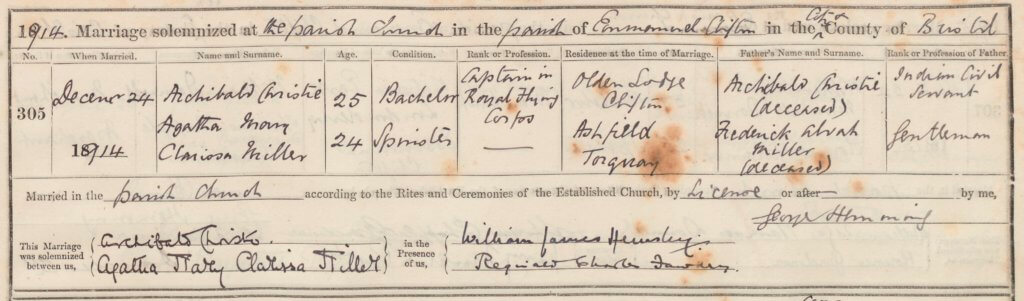 1914. Marriage solemnized at the parish Church in the parish of Emmanuel Clifton in the City & County of Bristol
No. When Married. Name and Surname. Age. Condition. Rank or Profession. Residence at the time of Marriage. Father's Name and Surname. Rank or Profession of Father.
305 Decemr 24 1914 Archibald Christie 25 Bachelor Captain in Royal Flying Corps Olden Lodge Clifton Archibald Christie (deceased) Indian Civil Servant
Agatha Mary Clarissa Miller 24 Spinster — Ashfield Torquay Frederick Alvah Miller (deceased) Gentleman
Married in the parish Church according to the Rites and Ceremonies of the Established Church, by Licence or after — by me,
George
This Marriage was solemnized between us, Archibald Christie. Agatha Mary Clarissa Miller in the Presence of us, William James Hemsley. Reginald Charles